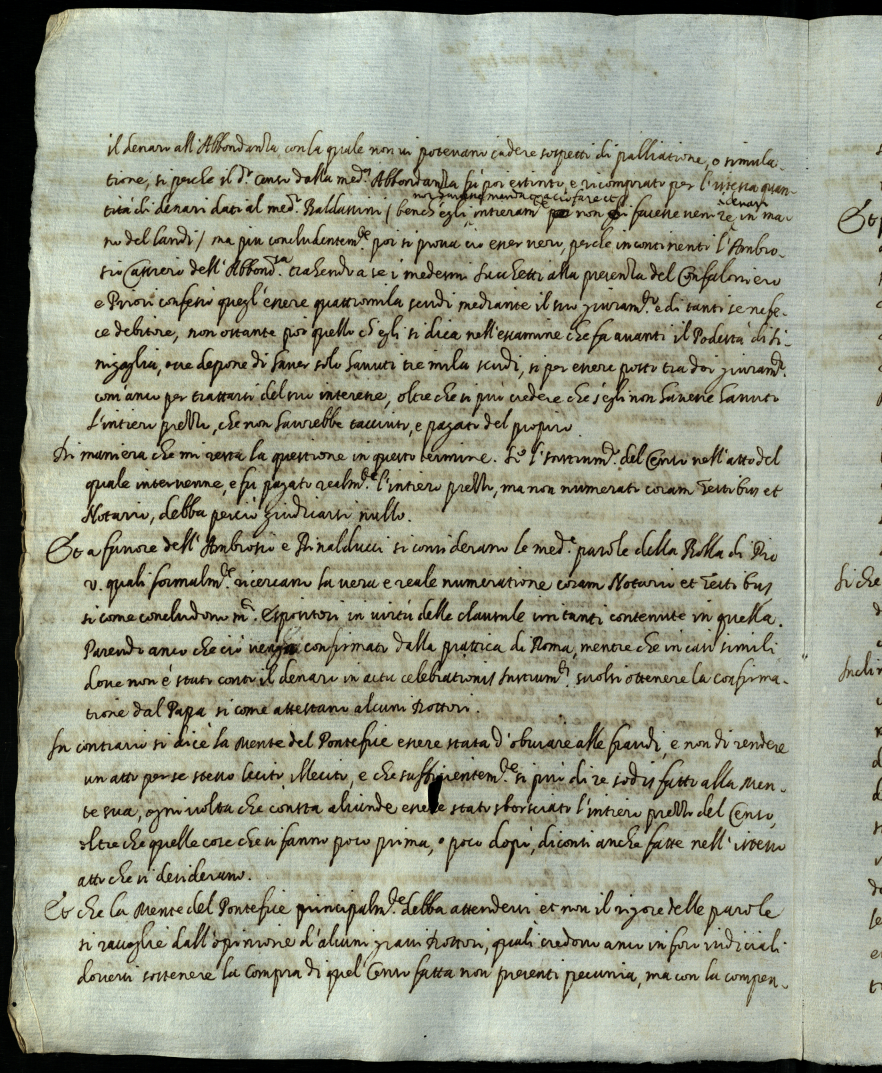 il denaro all'Abbondanza, con la quale non vi potevano cadere sospetti di palliatione, o simula-
tione, si perche il d.º censo dalla med.ª Abbondanza fu poi estinto, e ricomprato per l'istessa quan-
tità di denari dati al med.º Baldassini / bench'egli intieram.te non facesse venire in ma-
no del Landi / ma piu concludentem.te poi si prova ciò esser vero, perche incontinenti l'Ambro-
sio Cassiero dell'Abbond.za trahendo a se i medesmi sacchetti alla presenza del Confaloniero
e Priori confessò quegl'essere quattromila scudi mediante il suo giuram.to e di tanti se ne fe-
ce debitore, non ostante poi quello ch'egli si dica nell'essamine che fa avanti il Podestà di Si-
nigaglia, ove depone di haver solo havuti tre mila scudi, si per essere posto tra doi giuram.ti
com'anco per trattarsi del suo interesse, oltre che si può credere che s'egli non havesse havuto
l'intiero prezzo, che non havrebbe tacciuto, e pagato del proprio
Di maniera che mi resta la questione in questo termine. Se l'Instrum.to del Censo nell'atto del
quale intervenne, e fu pagato realm.te l'intiero prezzo, ma non numerato coram Testibus et
Notario, debba perciò giudicarsi nullo.
Et a favore dell'Ambrosio e Rinalducci si considerano le med.e parole della Bolla di Pio
V. quali formalm.te ricercano la vera e reale numeratione coram Notario et Testibus
si come concludono m.ti Espositori in virtù delle clausule irritanti contenute in quella.
Parendo anco che ciò venga confirmato dalla prattica di Roma, mentre che in casi simili
dove non è stato conto il denaro in actu celebrationis Instrum.ti suolsi ottenere la confirma-
tione dal Papa si come attestano alcuni Dottori.
In contrario si dice la Mente del Pontefice essere stata d'obviare alle fraudi, e non di rendere
un atto per se stesso lecito illecito, e che sufficientem.te si può dire sodisfatto alla Men-
te sua, ogni volta che consta aliunde essere stato sborsciato l'intiero prezzo del Censo,
oltre che quelle cose che si fanno poco prima, o poco dopò, diconsi anche fatte nell'istesso
atto che si desiderano.
Et che la Mente del Pontefice principalm.te debba attendersi et non il rigore delle parole
si raccoglie dall'opinione d'alcuni gravi Dottori, quali credono anco in foro iudiciali
doversi sostenere la Compra di quel Censo fatta non presenti pecunia, ma con la compen-